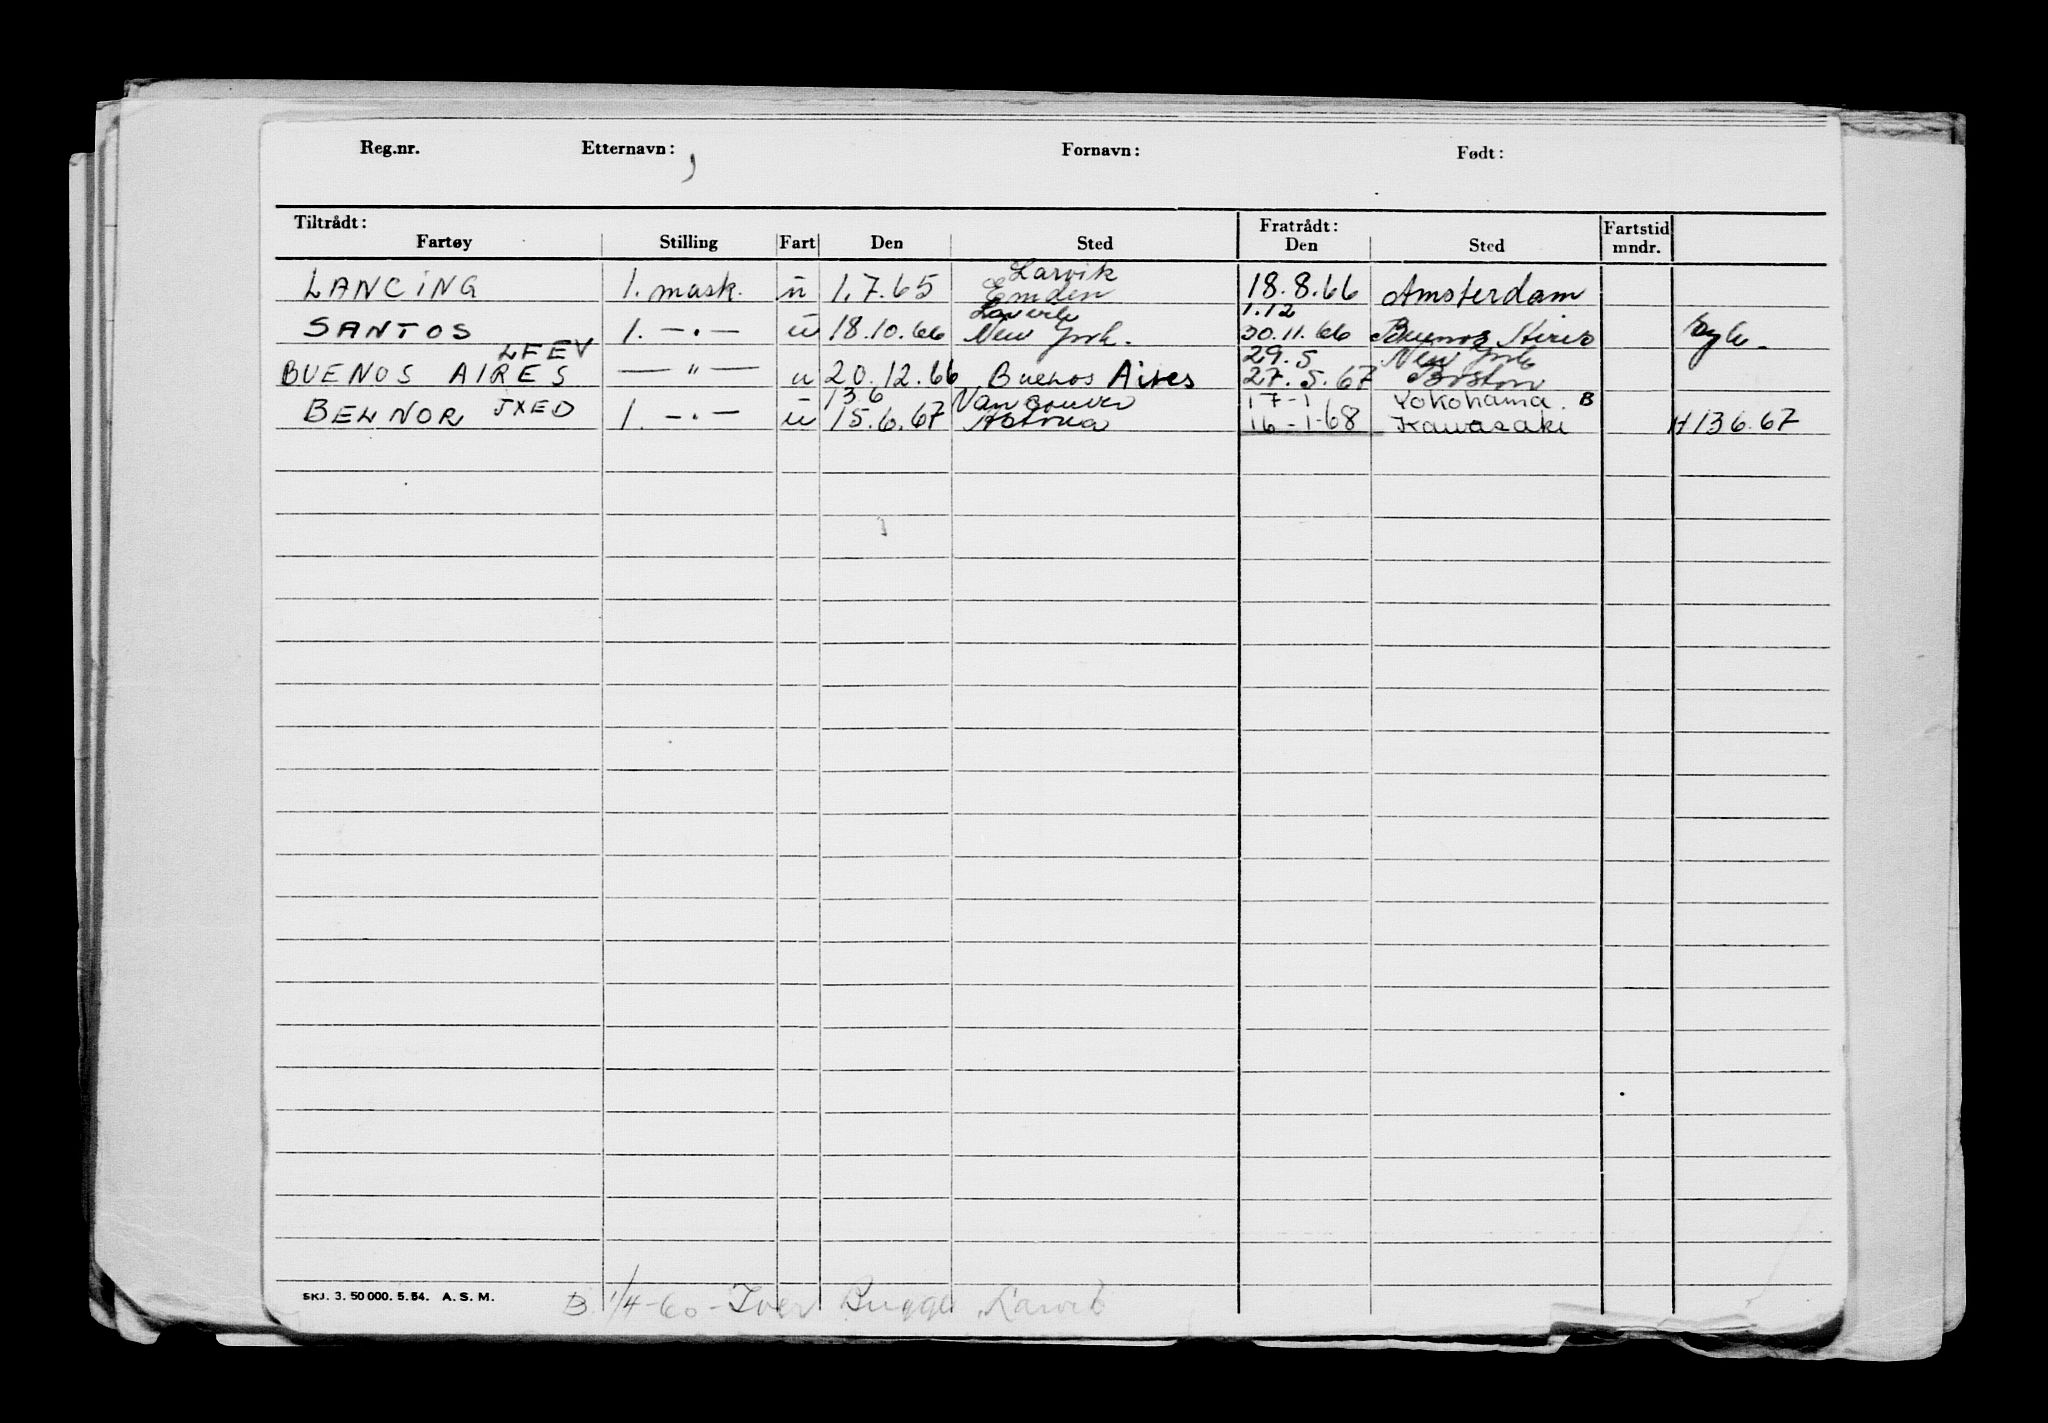 Reg.nr. Etternavn: Fornavn: Født:
Tiltrådt: Fratrådt: Fartstid
Fartøy Stilling Fart Den Sted Den Sted mndr.
Larvik
LANCING 1. mask. u 1.7.65 Emden 18.8.66 Amsterdam
Larvik 1.12
SANTOS 1. —.— u 18.10.66 New York. 30.11.66 Buenos Aires syk.
LFEV 29.5 New York
BUENOS AIRES — " — u 20.12.66 Buenos Aires 27.5.67 Boston
13.6 Vancouver 17-1 Yokohama. B
BELNOR JXED 1. —.— u 15.6.67 Astoria 16-1-68 Kawasaki H 13 6.67
SKJ. 3. 50 000. 5. 54. A. S. M.
B. 1/4-60 - Iver Bugge Larvik